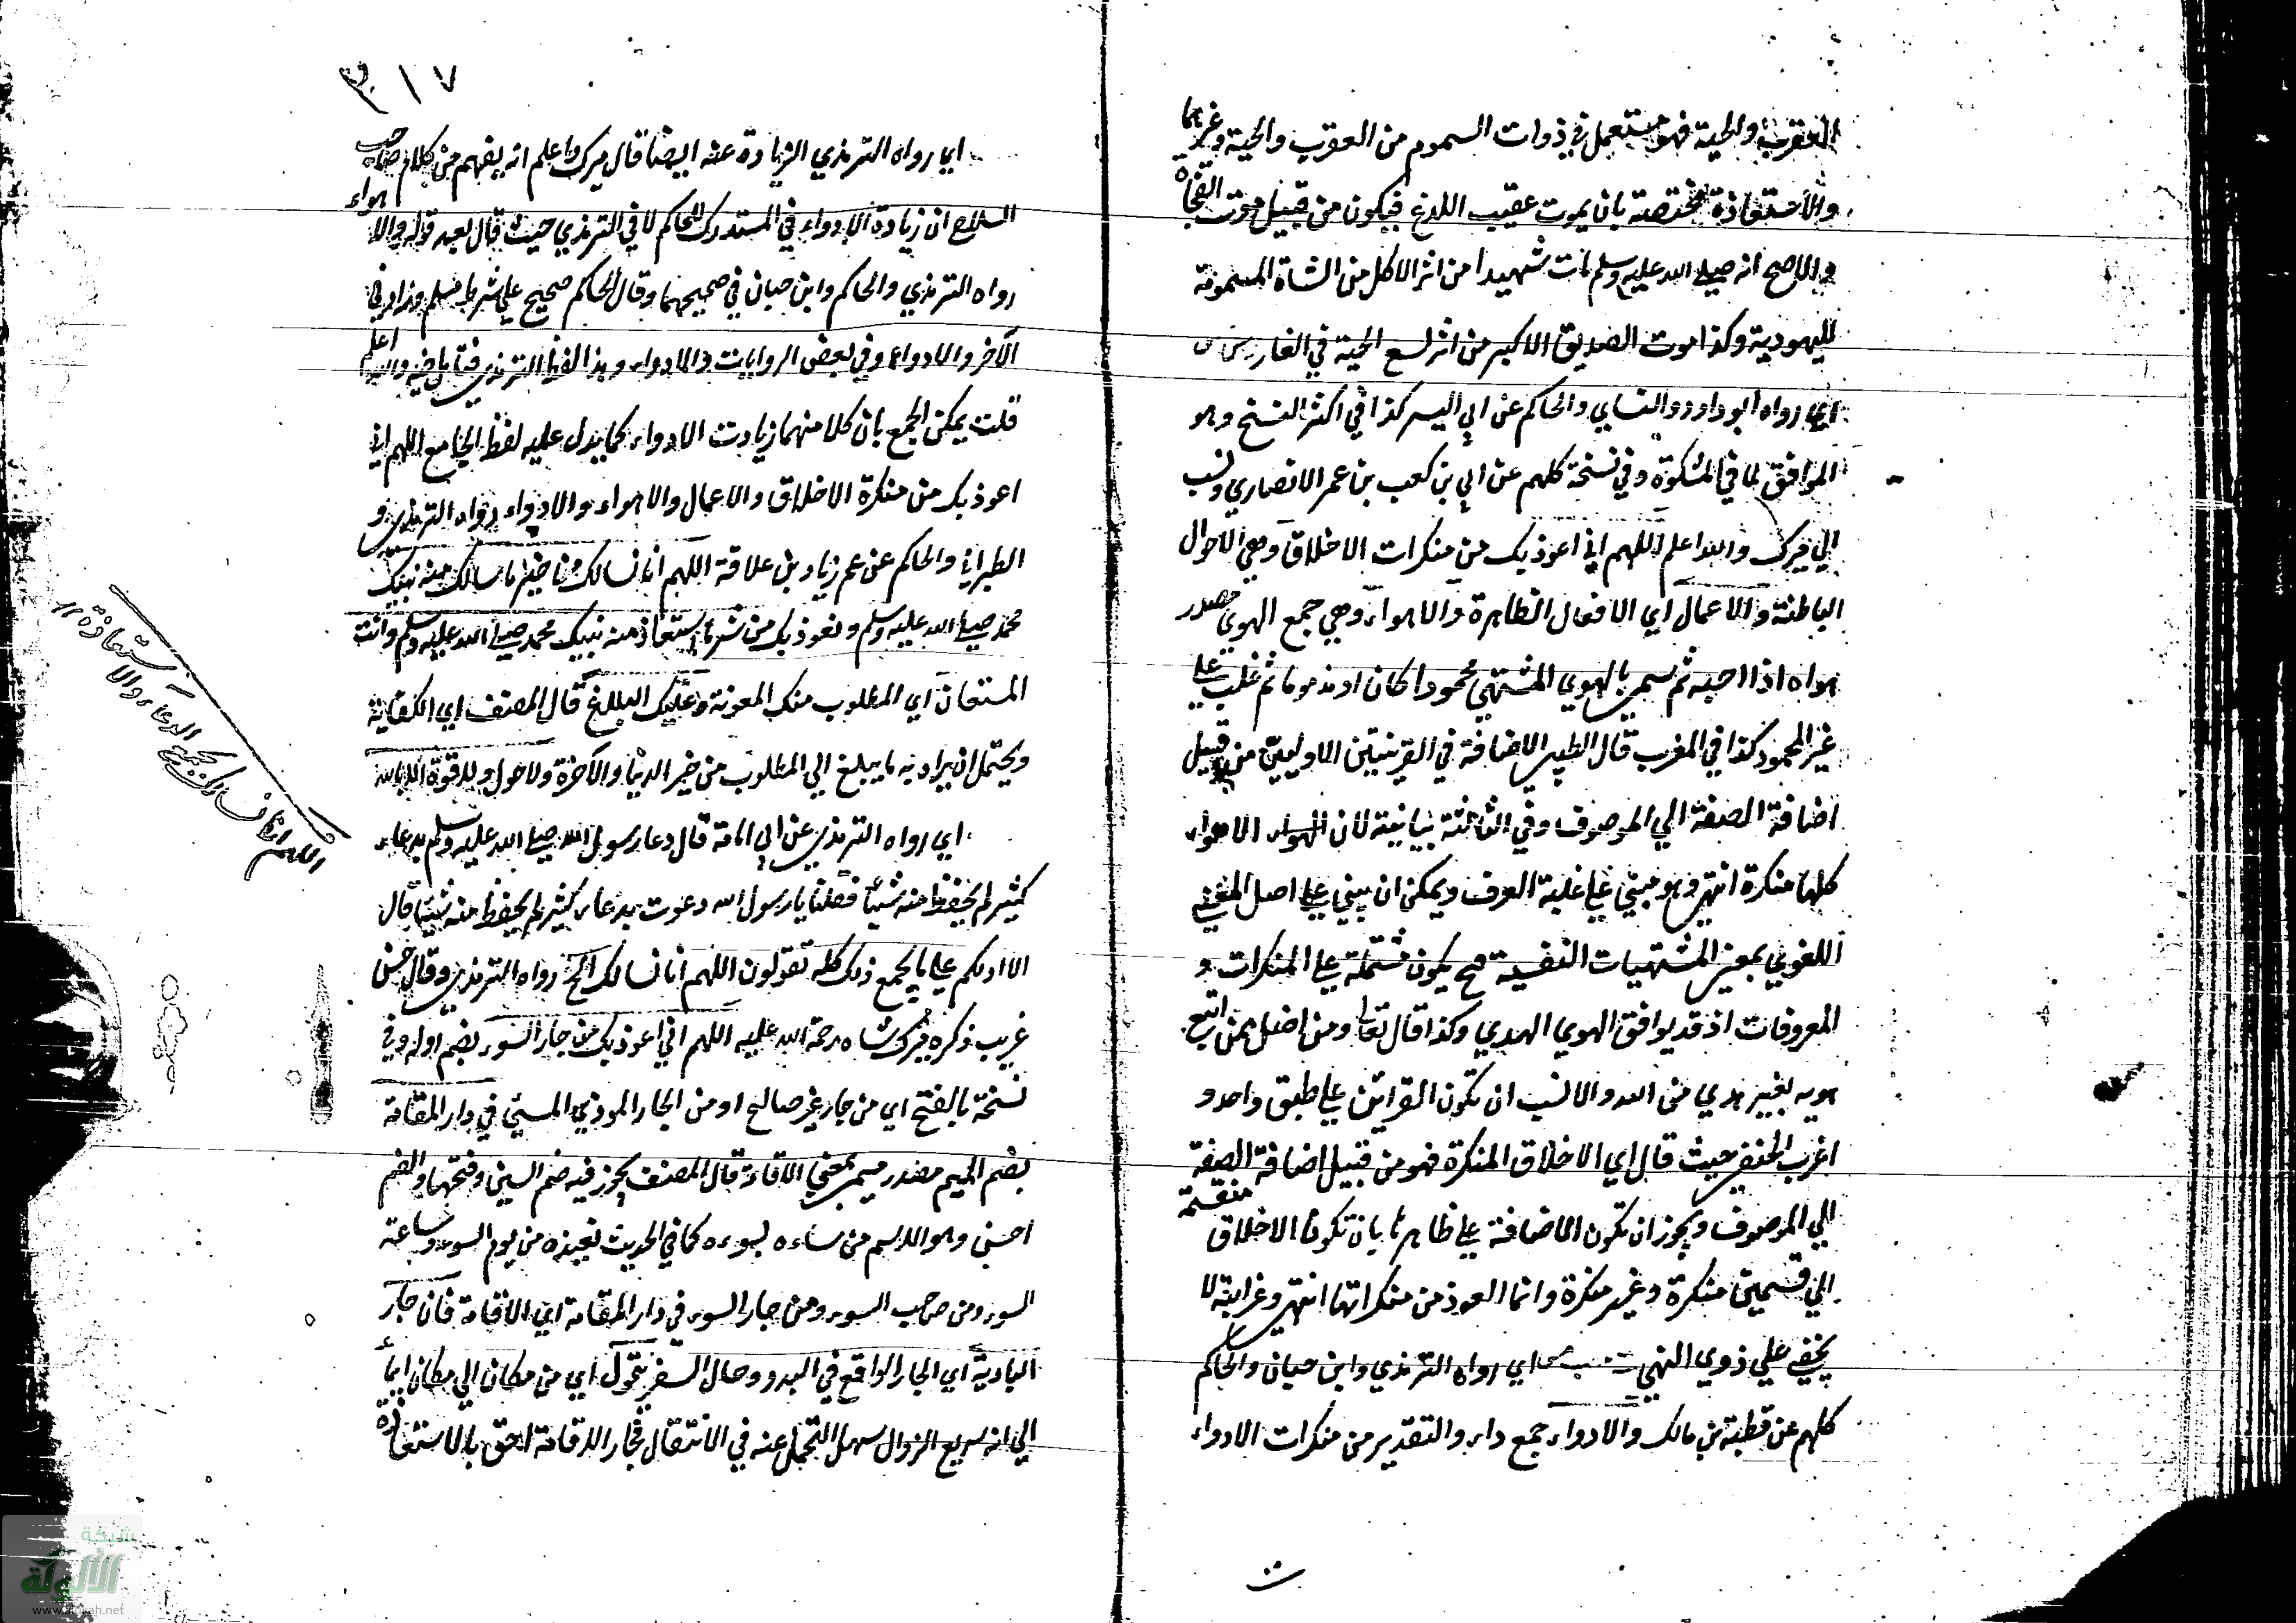 العقرب والحية فهو مستعمل في ذوات السموم من العقرب والحية وغيرهما
والاستعاذة مختصة بان يموت عقيب اللدغ فيكون من قبيل موت الفجأة
والاصح انه صلى الله عليه وسلم مات شهيدا من اثر الاكل من الشاة المسمومة
لليهودية وكذا موت الصديق الاكبر من اثر لسع الحية في الغار س س
اي رواه ابو داود والنسايي والحاكم عن ابي اليسر كذا في اكثر النسخ وهو
الموافق لما في المشكوة وفي نسخة كلهم عن ابي بن كعب بن عمر الانصاري ونسب
الي ميرك والله اعلم اللهم اني اعوذ بك من منكرات الاخلاق وهي الاحوال
الباطنة والاعمال اي الافعال الظاهرة والاهواء وهي جمع الهوي مصدر
هواه اذا احبه ثم سمي بالهوي المشتهي محمودا كان او مذموما ثم غلب علي
غير المحمود كذا في المغرب قال الطيبي الاضافة في القرينتين الاوليين من قبيل
اضافة الصفة الي الموصوف وفي الثالثة بيانية لان الهواء الاهواء
كلها منكرة انتهي وهو مبني علي غلبة العرف ويمكن ان يبني علي اصل المعني
اللغوي بمعني المشتهيات النفسية فح يكون مشتملة علي المنكرات و
المعروفات اذ قد يوافق الهوي الهدي وكذا قال تعالي ومن اضل ممن اتبع
هويه بغير هدي من الله والانسب ان تكون القرائن علي طبق واحد و
اغرب الحنفي حيث قال اي الاخلاق المنكرة فهو من قبيل اضافة الصفة
الي الموصوف ويجوز ان تكون الاضافة علي ظاهرها بان تكون الاخلاق منقسمة
الي قسمين منكرة وغير منكرة وانما العوذ من منكراتها انتهي وغرابته لا
يخفي علي ذوي النهي ت حب مس اي رواه الترمذي وابن حبان والحاكم
كلهم عن قطبة بن مالك والادواء جمع داء والتقدير من منكرات الادواء
ت
٣١٧
اي رواه الترمذي الزيادة عنه ايضا قال ميرك واعلم انه يفهم من كلام صاحب
السلاح ان زيادة الادواء في المستدرك للحاكم لا في الترمذي حيث قال بعد قوله والاهواء
رواه الترمذي والحاكم وابن حبان في صحيحهما وقال الحاكم صحيح علي شرط مسلم وزاد في
الآخر والادواء وفي بعض الروايات والادواء وهذا لفظ الترمذي فتأمل فيه والله اعلم
قلت يمكن الجمع بان كلا منهما زيادت الادواء كما يدل عليه لفظ الجامع اللهم اني
اعوذ بك من منكرة الاخلاق والاعمال والاهواء والادواء رواه الترمذي و
الطبراني والحاكم عن عم زياد بن علاقة اللهم انا نسالك من خير ما سالك منه نبيك
محمد صلى الله عليه وسلم ونعوذ بك من شر ما استعاذ منه نبيك محمد صلى الله عليه وسلم وانت
المستعان اي المطلوب منك المعونة وعليك البلاغ قال المصنف اي الكفاية
ويحتمل ان يراد به ما يبلغ الي المطلوب من خير الدنيا والآخرة ولا حول ولا قوة الا بالله
ت اي رواه الترمذي عن ابي امامة قال دعا رسول الله صلى الله عليه وسلم بدعاء
كثير لم يحفظ منه شيئا فقلنا يا رسول الله دعوت بدعاء كثير لم يحفظ منه شيئا قال
الا ادلكم علي ما يجمع ذلك كله تقولون اللهم انا نسالك الخ رواه الترمذي وقال حسن
غريب ذكره ميرك شاه رحمة الله عليه اللهم اني اعوذ بك من جار السوء بضم اوله وفي
نسخة بالفتح اي من جار غير صالح او من الجار الموذي المسيئ في دار المقامة
بضم الميم مصدر ميمي بمعني الاقامة قال المصنف يجوز فيه ضم السين وفتحها والضم
احسن وهو الاسم من ساءه يسوءه كما في الحديث تعيذه من يوم السوء وساعة
السوء ومن صاحب السوء ومن جار السوء في دار المقامة اي الاقامة فان جار
البادية اي الجار الواقع في البدو وحال السفر يتحول اي من مكان الي مكان ايماء
الي انه سريع الزوال سهل التحمل عنه في الانتقال فجار الاقامة احق بالاستعاذة